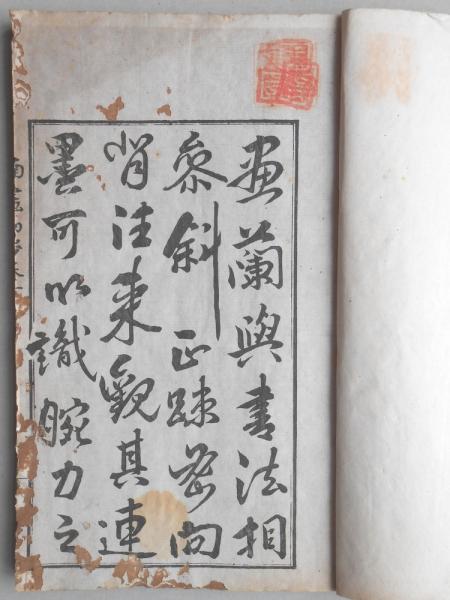 畫蘭與書法相
參斜正疎密向
背法東觀其運
墨可以識腕力之